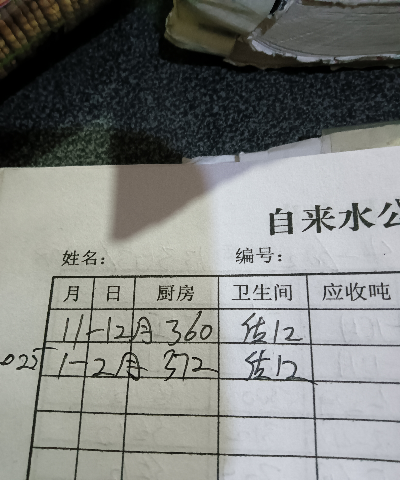 自来水公
姓名: 编号:
月 日 厨房 卫生间 应收吨
11-12月 360 估12
025 1-2月 372 估12